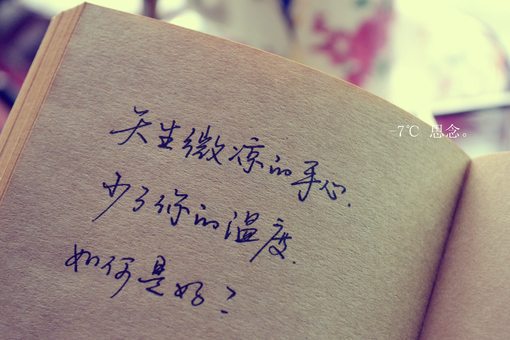 -7℃ 思念。
天生微凉的手心.
少了你的温度.
如何是好?